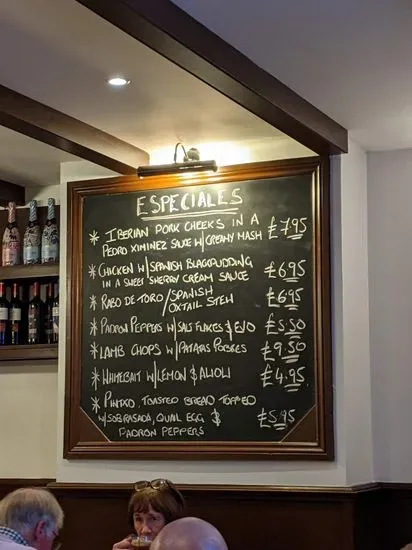 ESPECIALES
* IBERIAN PORK CHEEKS IN A
PEDRO XIMINEZ SAUCE W/CREAMY MASH £7.95
* CHICKEN W/SPANISH BLACKPUDDING
IN A SWEET SHERRY CREAM SAUCE £6.95
* RABO DE TORO/SPANISH
OXTAIL STEW £6.95
* PADRON PEPPERS W/SALT FLAKES & EVO £5.50
* LAMB CHOPS W/PATATAS POBRES £9.50
* WHITEBAIT W/LEMON & ALIOLI £4.95
* PINTXO, TOASTED BREAD TOPPED
W/SOBRASADA, QUAIL EGG &
PADRON PEPPERS £5.95